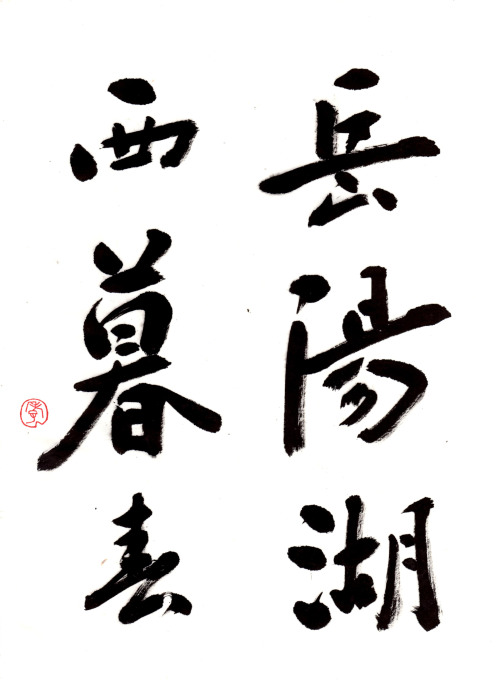 岳陽湖
西暮春